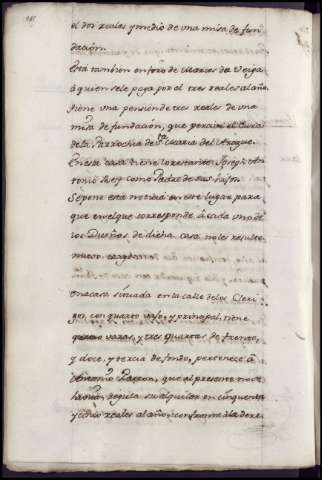 el dos reales y medio de una misa de fun-
dación.
Está tambien en foro de
à quien se le paga por el tres reales al año.
tiene una pensión de tres reales de una
misa de fundación, que percive el Cura
de la Parrochia de Sta. Maria del Azogue.
En esta casa tiene lo restante
como Padre de sus hijos.
Se pone está noticia en este lugar para
que en el que corresponde â cada uno de
los Dueños de dicha casa no les resulte
nuevo cargo.
una casa situada en la calle de los Cleri-
gos, con quarto vajo, y principal, tiene
quatro varas, y tres quartas de frente,
y doce, y tercia de fondo, pertenece à
Antonio que al presente no la
regula su alquiler en cinquenta
y cinco reales al año; conforme à la dere-